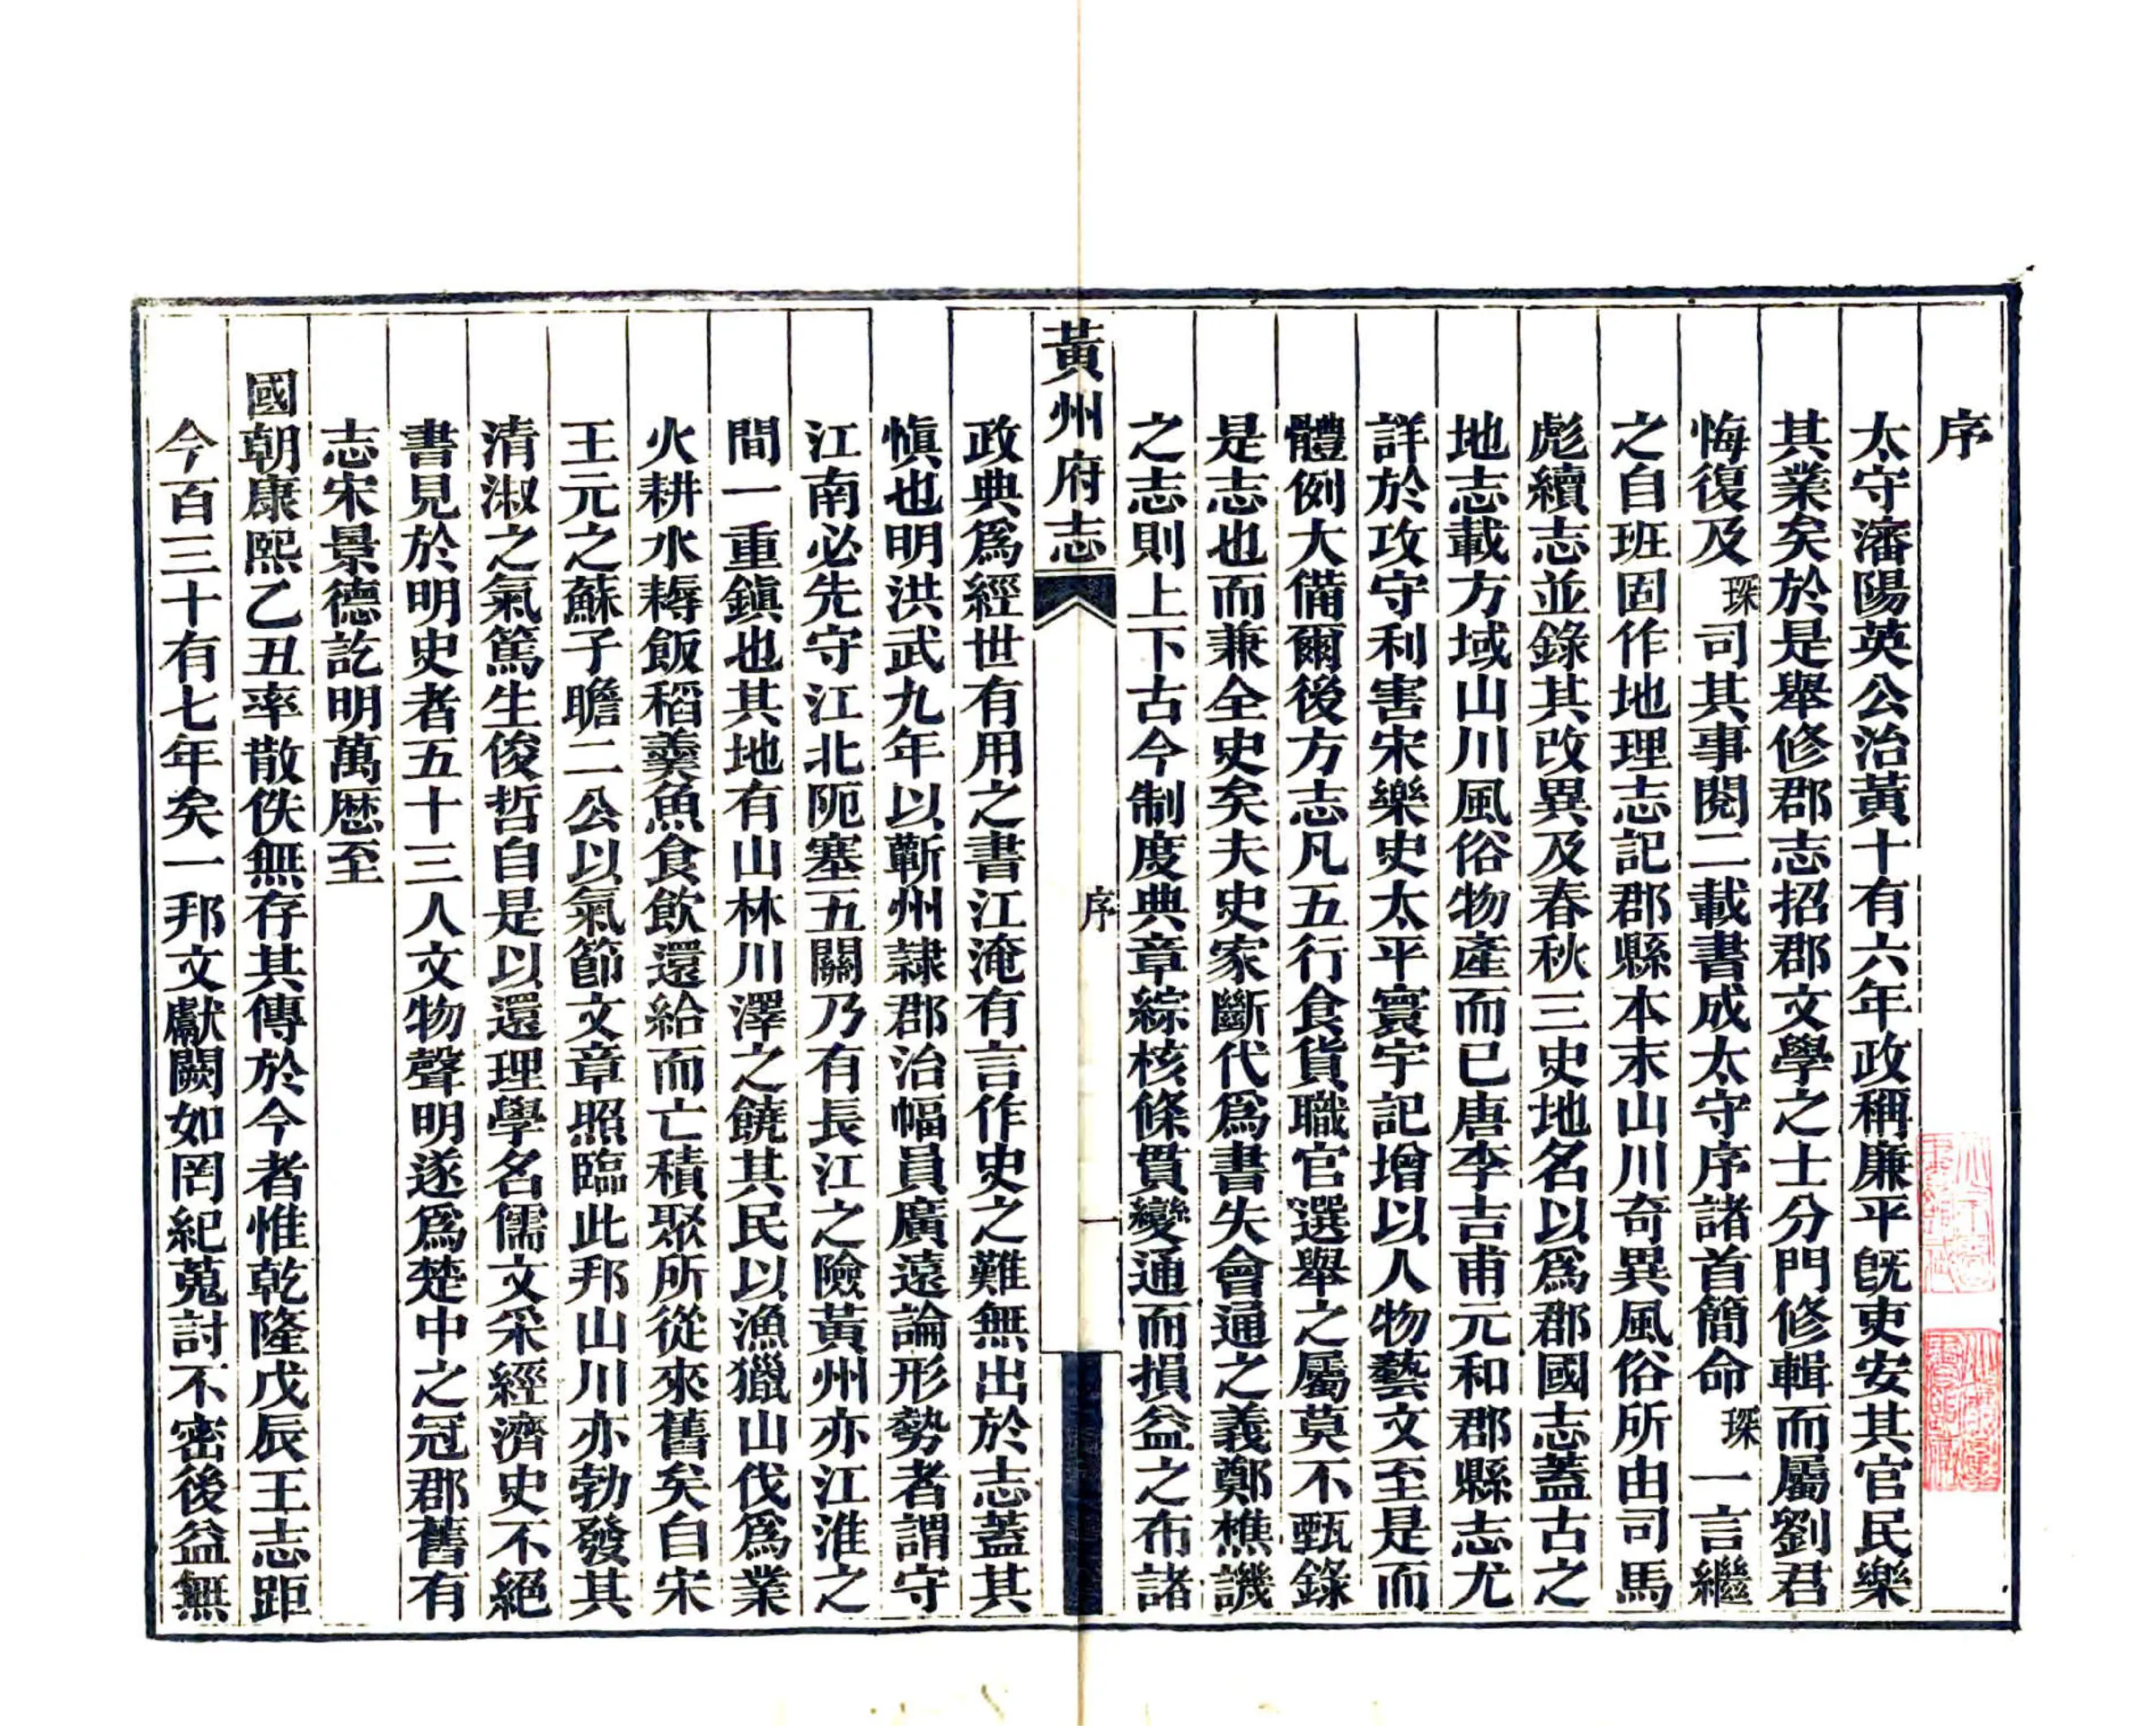 序
太守瀋陽英公治黃十有六年政稱廉平旣吏安其官民樂
其業矣於是舉修郡志招郡文學之士分門修輯而屬劉君
悔復及琛司其事閱二載書成太守序諸首簡命琛一言繼
之自班固作地理志記郡縣本末山川奇異風俗所由司馬
彪續志並錄其改異及春秋三史地名以爲郡國志蓋古之
地志載方域山川風俗物產而已唐李吉甫元和郡縣志尤
詳於攻守利害宋樂史太平寰宇記增以人物藝文至是而
體例大備爾後方志凡五行食貨職官選舉之屬莫不甄錄
是志也而兼全史矣夫史家斷代爲書失會通之義鄭樵譏
之志則上下古今制度典章綜核條貫變通而損益之布諸
黃州府志
序
一
政典爲經世有用之書江淹有言作史之難無出於志蓋其
愼也明洪武九年以蘄州隸郡治幅員廣遠論形勢者謂守
江南必先守江北阨塞五關乃有長江之險黃州亦江淮之
間一重鎭也其地有山林川澤之饒其民以漁獵山伐爲業
火耕水耨飯稻羹魚食飮還給而亡積聚所從來舊矣自宋
王元之蘇子瞻二公以氣節文章照臨此邦山川亦勃發其
清淑之氣篤生俊哲自是以還理學名儒文采經濟史不絕
書見於明史者五十三人文物聲明遂爲楚中之冠郡舊有
志宋景德訖明萬厯至
國朝康熙乙丑率散佚無存其傳於今者惟乾隆戊辰王志距
今百三十有七年矣一邦文獻闕如罔紀蒐討不密後益無